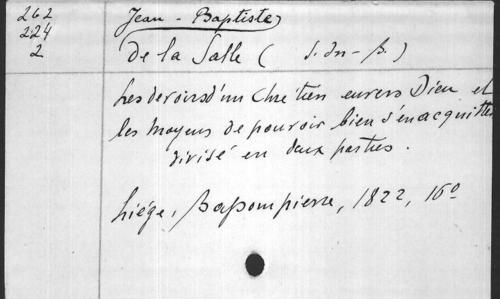 262
224
2
Jean-Baptiste
De la Salle ( S. Jn-B. )
Les devoirs d'un Chrétien envers Dieu et
les moyens de pouvoir bien s'en acquitter
divisé en deux parties.
Liége, Bassompierre, 1822, 16°